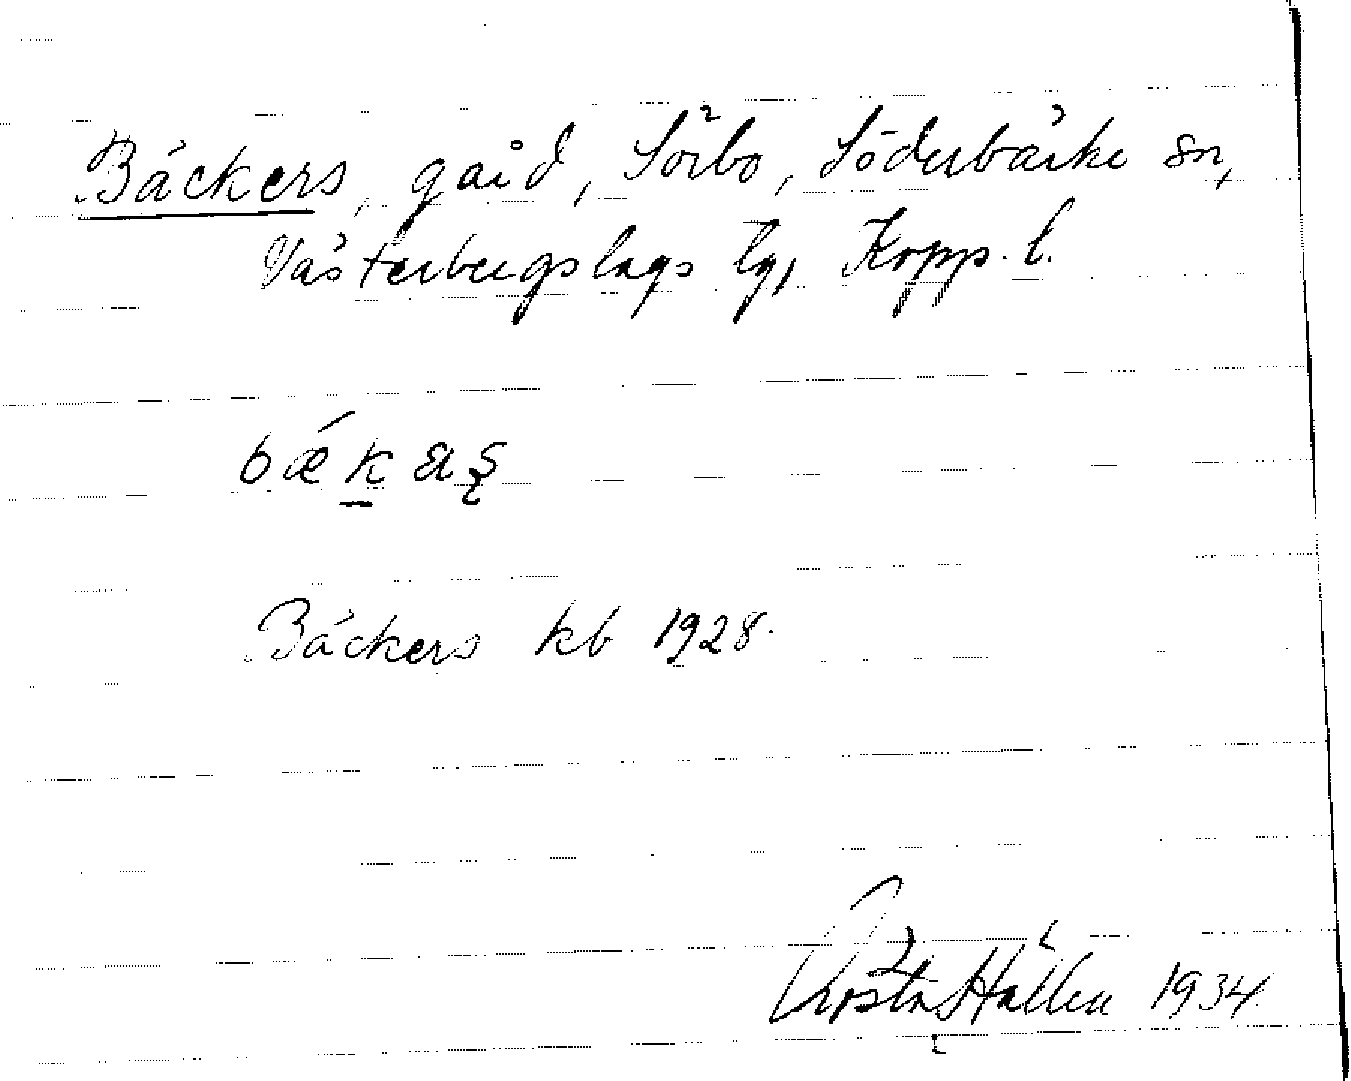 Bäckers, gård, Sörbo, Söderbärke sn,
Västerbergslags tg, Kopp. l.
bǽk̲aʂ
Bäckers kb 1928.
Gösta Hållén 1934